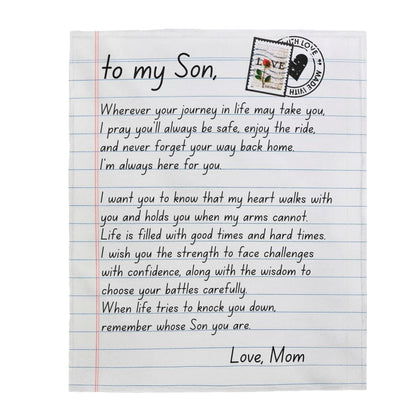 to my Son,
LOVE
WITH LOVE
MADE WITH
Wherever your journey in life may take you,
I pray you'll always be safe, enjoy the ride,
and never forget your way back home.
I'm always here for you.
I want you to know that my heart walks with
you and holds you when my arms cannot.
Life is filled with good times and hard times.
I wish you the strength to face challenges
with confidence, along with the wisdom to
choose your battles carefully.
When life tries to knock you down,
remember whose Son you are.
Love, Mom